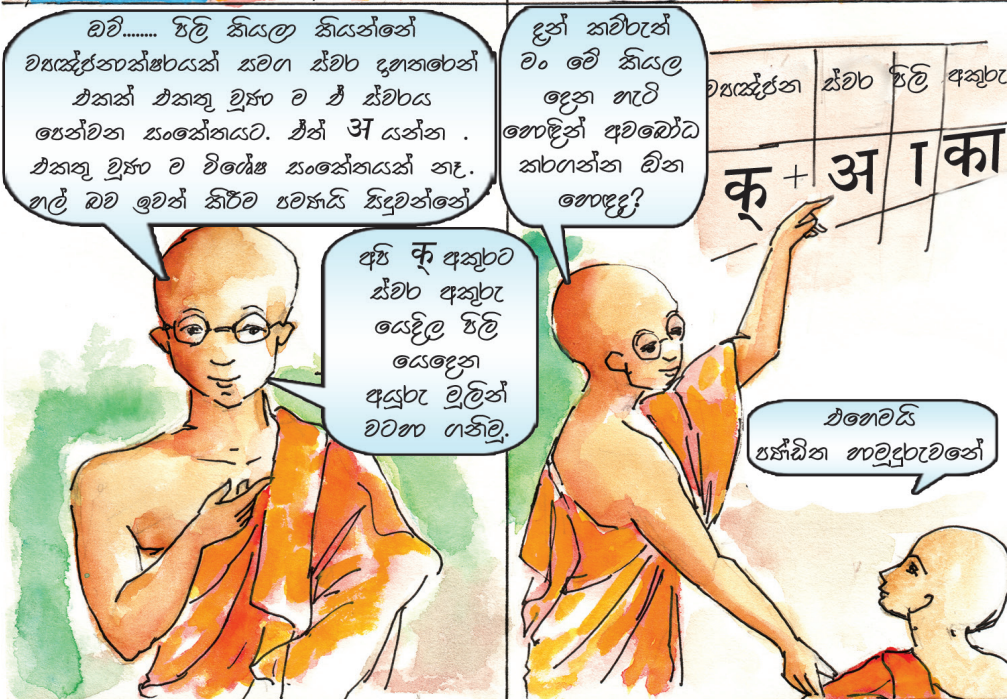 ඔව්........ පිලි කියලා කියන්නේ
ව්‍යඤ්ජනාක්ෂරයක් සමග ස්වර දාහතරෙන්
එකක් එකතු වූණා ම ඒ ස්වරය
පෙන්වන සංකේතයට. ඒත් अ යන්න .
එකතු වූණා ම විශේෂ සංකේතයක් නෑ.
හල් බව ඉවත් කිරීම පමණයි සිදුවන්නේ
අපි क् අකුරට
ස්වර අකුරු
යෙදිල පිලි
යෙදෙන
අයුරු මුලින්
වටහා ගනිමු.
දැන් කව්රුත්
මං මේ කියල
දෙන හැටි
හොඳින් අවබෝධ
කරගන්න ඕන
හොඳද?
ව්‍යඤ්ජන ස්වර පිලි අකුරු
क् + अ ा का
එහෙමයි
පණ්ඩිත හාමුදුරුවනේ